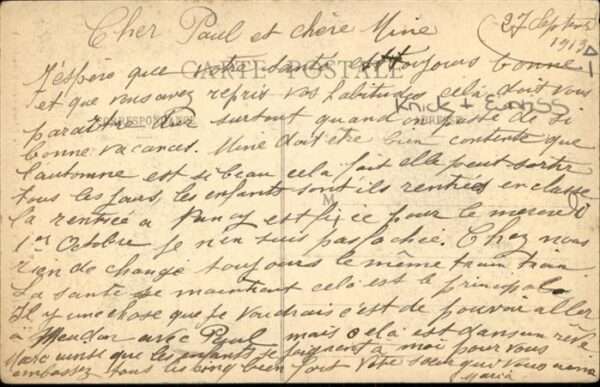 Cher Paul et chère Mine
27 Septembre
1913
CARTE POSTALE
J'espère que votre santé est toujours bonne
et que vous avez repris vos habitudes cela doit vous
Knick + Eunass
paraître dur surtout quand on passe de si
CORRESPONDANCE
ADRESSE
bonne vacances. Mine doit être bien contente que
l'automne est si beau cela fait elle peut sortir
tous les jours, les enfants sont ils rentrés en classe
M
la rentrée à Nancy est fixée pour le mercredi
1er Octobre je n'en suis pas fachée. Chez nous
rien de changé toujours le même train train.
La santé se maintient cela est le principal.
Il y une chose que je voudrais c'est de pouvoir aller
à Meudon avec Paul mais cela est dans un rêve
Marc ainsi que les enfants se joignent à moi pour vous
embrassez tous les cinq bien fort Votre sœur qui vous aime
Maria